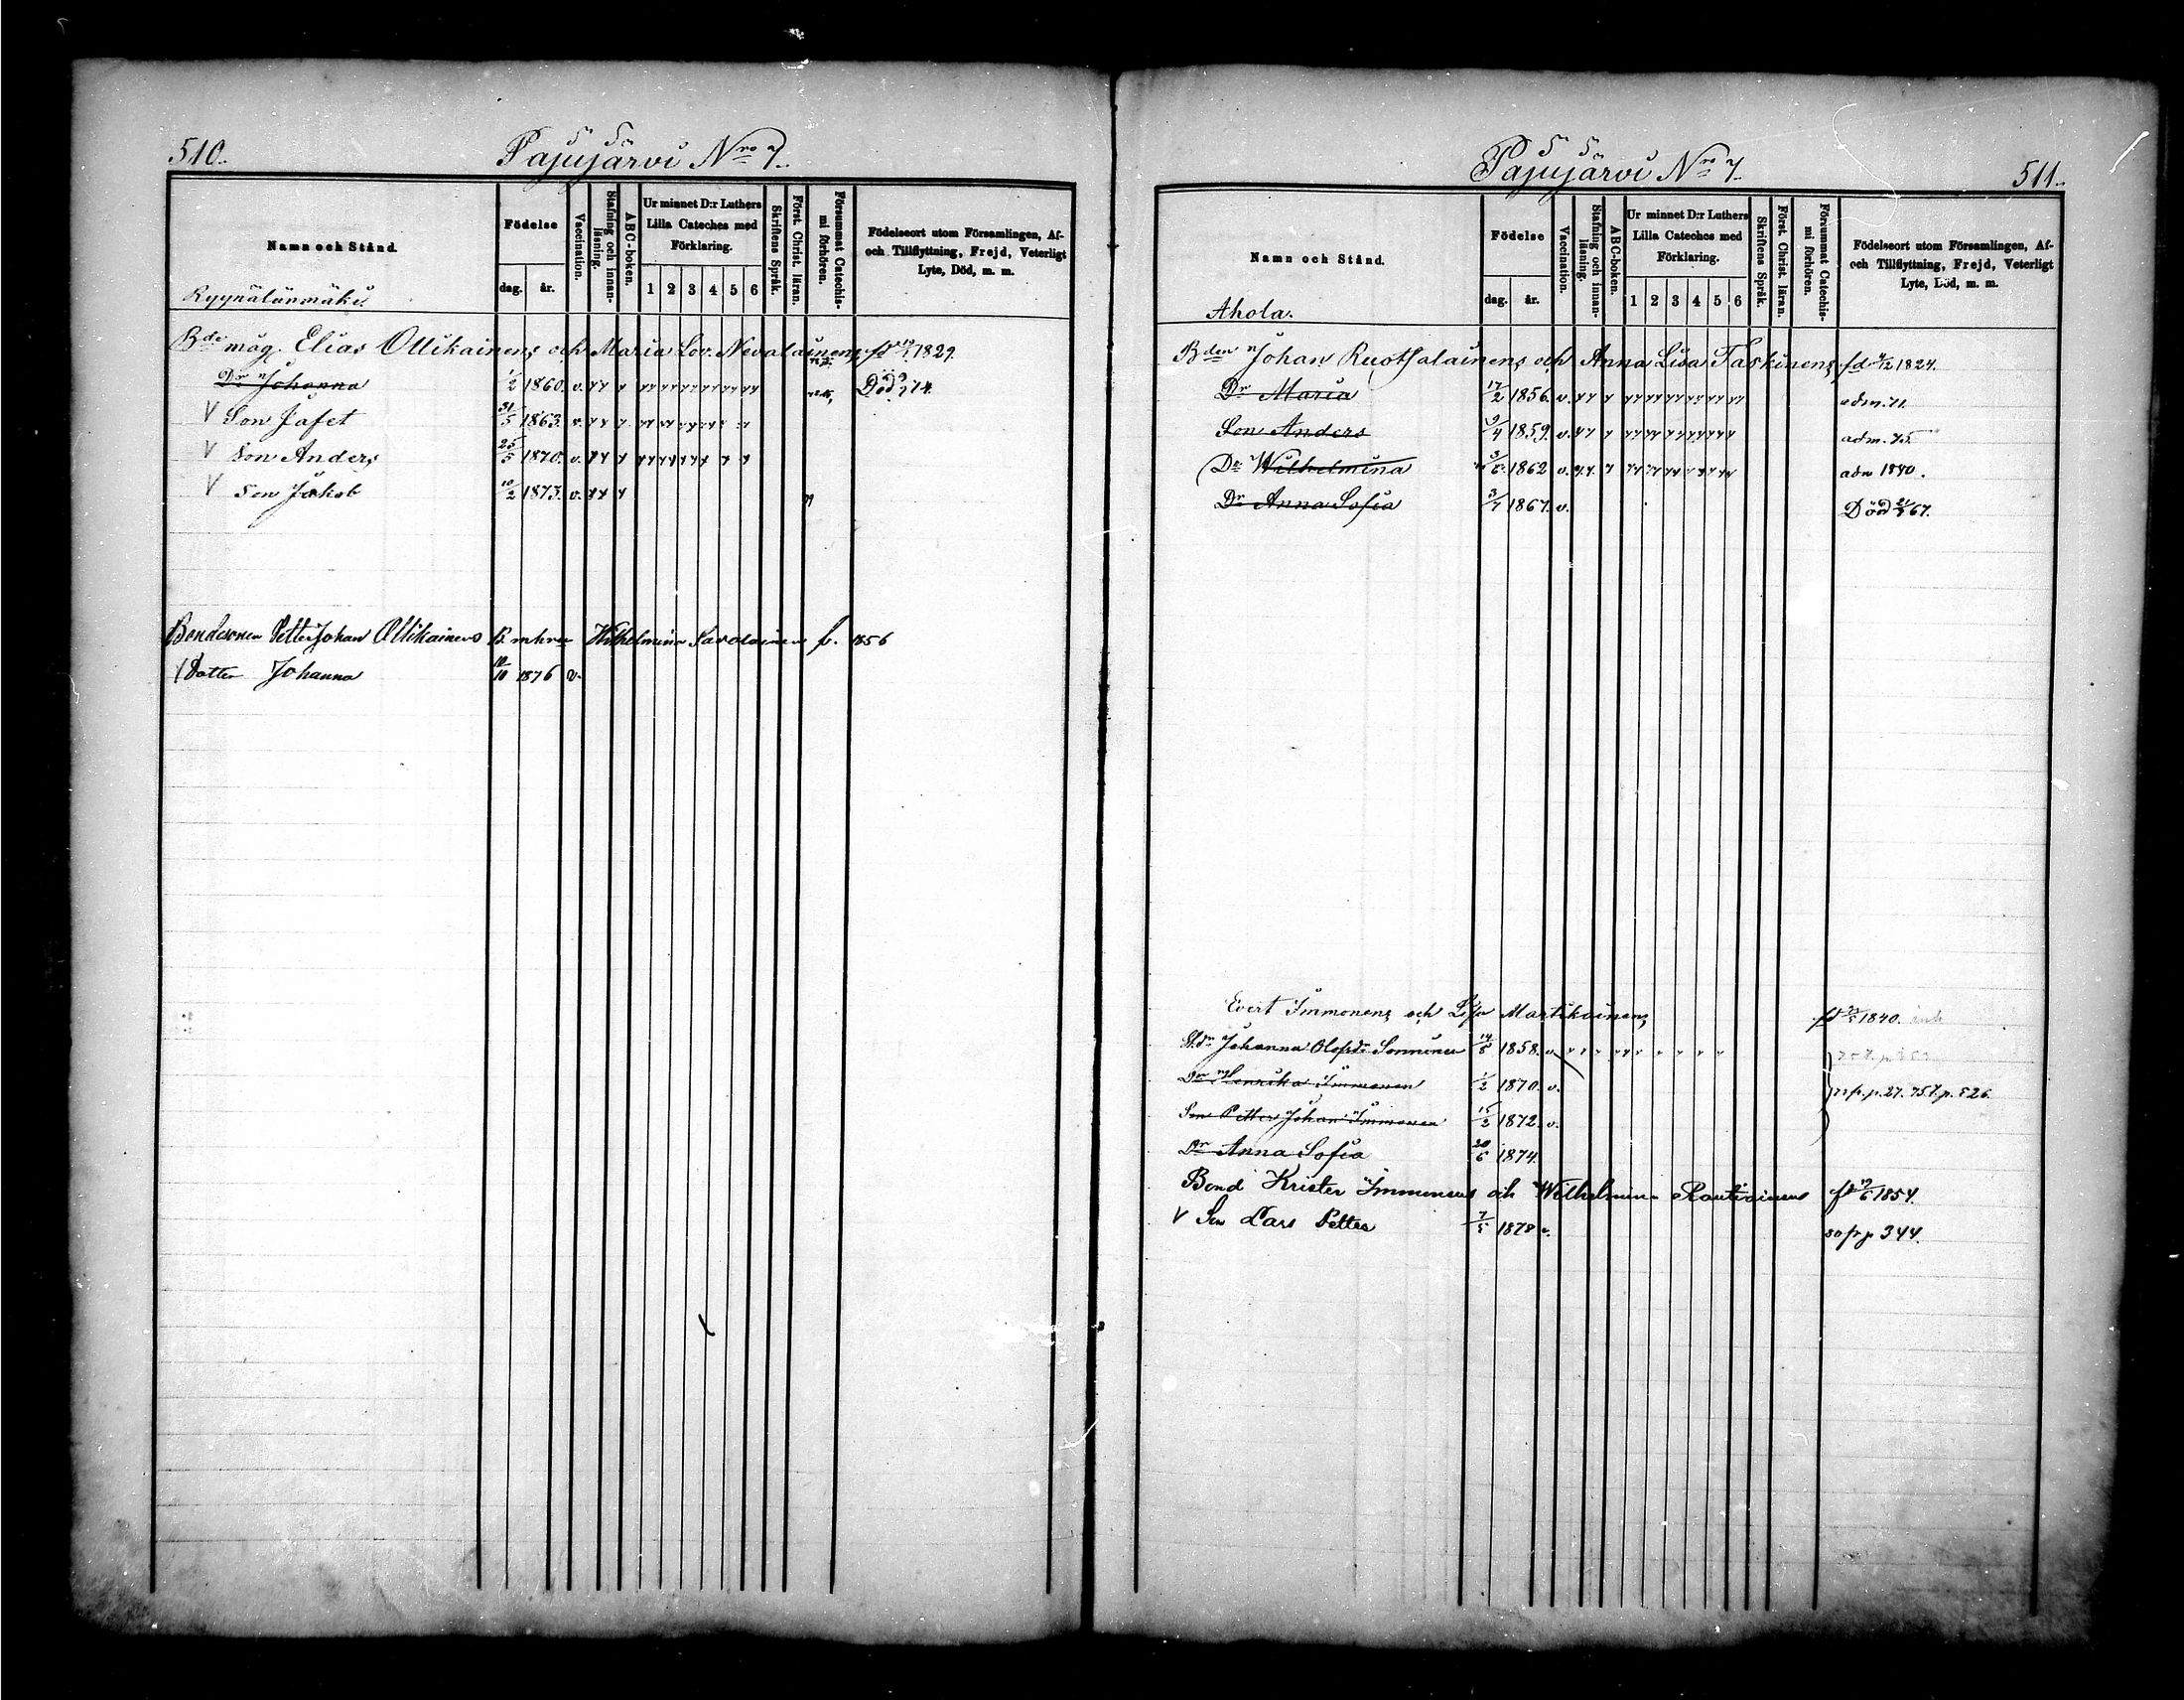 510.
Pajujärvi Nro 7.
Namn och Stånd.
Födelse
dag.
år.
Vaccination.
Stafning och innan-läsning.
ABC-boken.
Ur minnet D:r Luthers
Lilla Cateches med
Förklaring.
1 2 3 4 5 6
Skriftens Språk.
Först. Christ. läran.
Försummat Catechis-mi förhören.
Födelseort utom Församlingen, Af-
och Tillflyttning, Frejd, Veterligt
Lyte, Död, m. m.
Ryynälänmäki
Bde måg. Elias Ollikainens och Maria Lov. Nevalainens 1829.
Dr Johanna 1/2 1860. v. Död 74.
V Son Jafet 31/5 1863. v.
V Son Anders 25/5 1870. v.
V Son Jakob 10/2 1873. v.
Bondesonen Petter Johan Ollikainens Wilhelmina Savolainen f. 1856
Dotter Johanna 10/10 1876 v.
Pajujärvi Nro 7.
511.
Namn och Stånd.
Födelse
dag.
år.
Vaccination.
Stafning och innan-läsning.
ABC-boken.
Ur minnet D:r Luthers
Lilla Cateches med
Förklaring.
1 2 3 4 5 6
Skriftens Språk.
Först. Christ. läran.
Försummat Catechis-mi förhören.
Födelseort utom Församlingen, Af-
och Tillflyttning, Frejd, Veterligt
Lyte, Död, m. m.
Ahola.
Bden Johan Ruotsalainens och Anna Lisa Taskinens fd 1824.
Dr Maria 17/2 1856. v. adm. 71.
Son Anders 9/4 1859. v. adm. 75.
Dr Wilhelmina 1862 v. adm 1880.
Dr Anna Sofia 1867. v. Död 67.
Evert Immonens och Lisa Martikainens 1840.
Johanna Olofsdr Sonninen 14/8 1858. v.
Dr Henrika Immonen 1/2 1870. v. p. 27. p. 526.
Son Petter Johan Immonen 15/2 1872. v.
Dr Anna Sofia 20/6 1874.
Bond Krister Immonens och Wilhelmina Rautiainens 1854.
V Son Lars Petter 7/5 1878 v. 80 fr p 344.